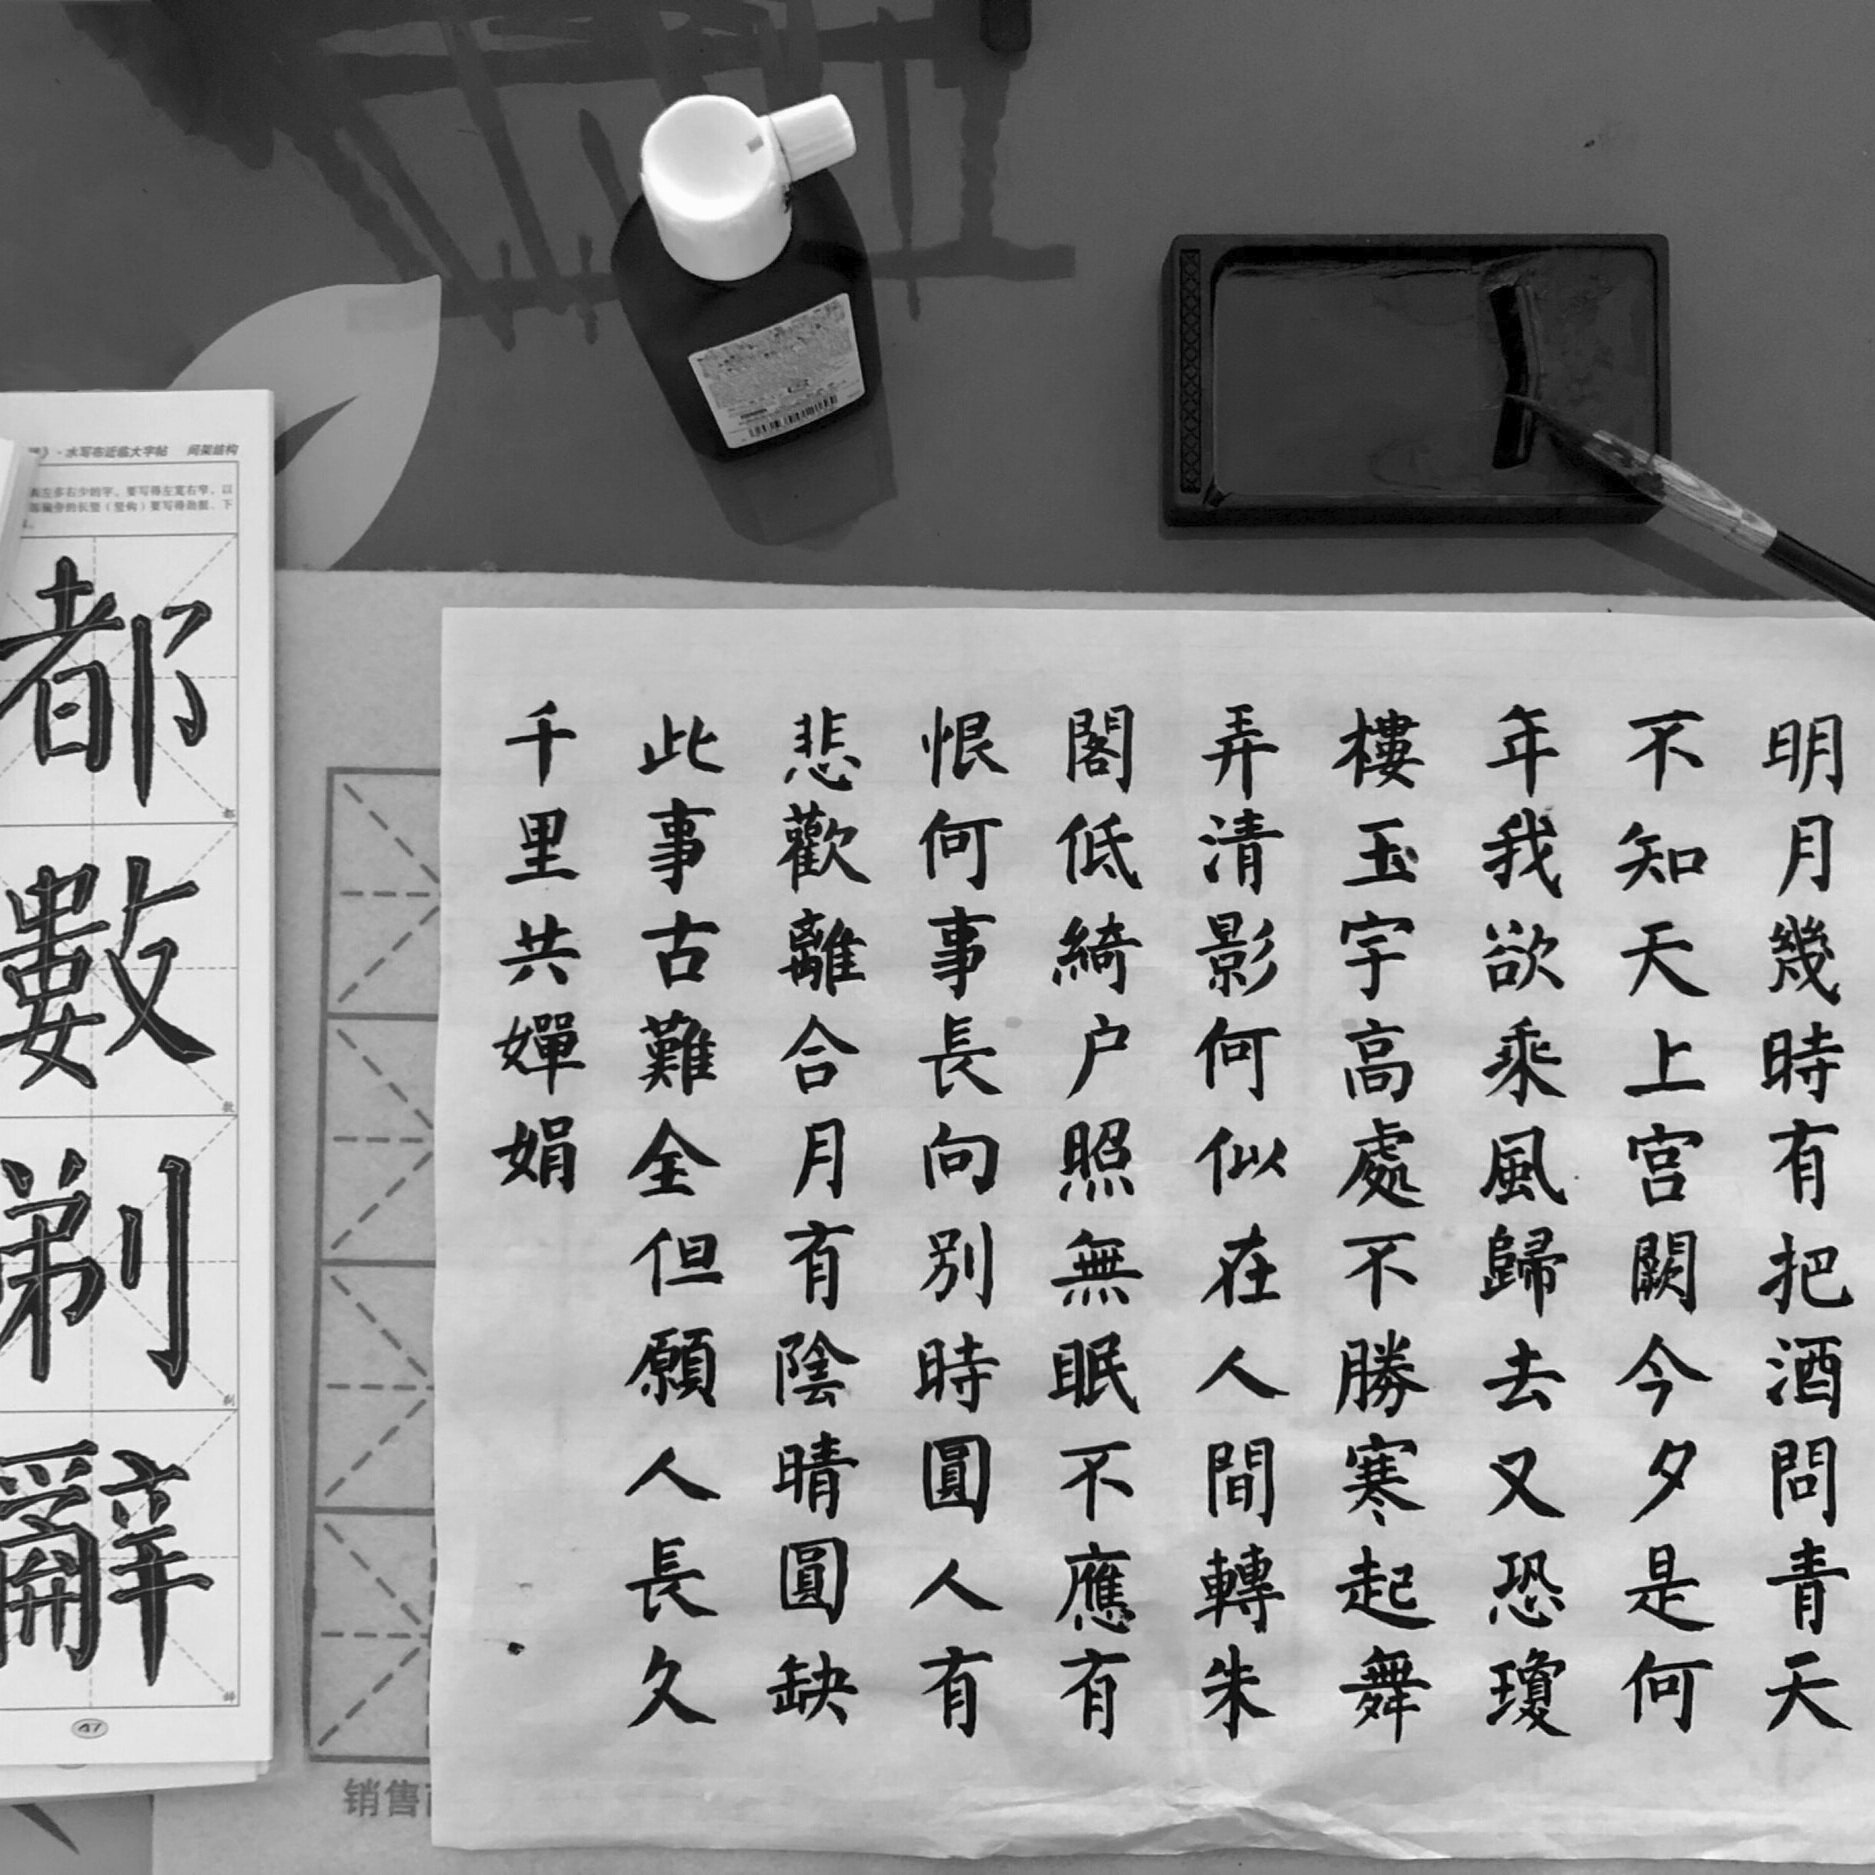 明月幾時有把酒問青天
不知天上宮闕今夕是何
年我欲乘風歸去又恐瓊
樓玉宇高處不勝寒起舞
弄清影何似在人間轉朱
閣低綺户照無眠不應有
恨何事長向别時圓人有
悲歡離合月有陰晴圓缺
此事古難全但願人長久
千里共嬋娟
水写布近临大字帖 间架结构
左多右少的字，要写得左宽右窄，以
的长竖（竖钩）要写得劲挺、下
都
數
剃
辭
47
销售